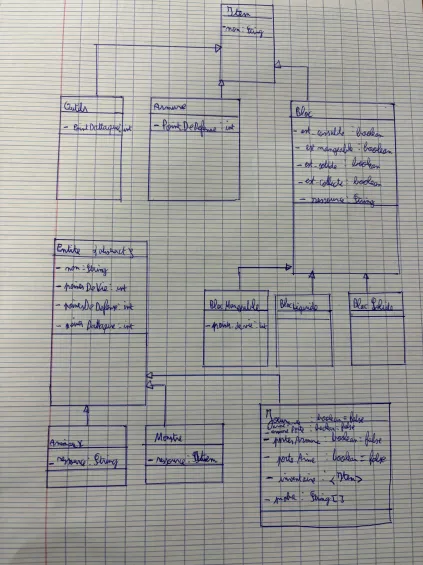 Item
- nom : String
Outils
- PointDattaque : int
Armure
- PointDeDefense : int
Bloc
- est_cassable : boolean
- est mangeable : boolean
- est_solide : boolean
- est_collecté : boolean
- ressource : String
Entité {abstract}
- nom : String
- pointsDeVie : int
- pointsDeDefense : int
- points Dattaque : int
Bloc Mangeable
- points_de_vie : int
Bloc Liquide
Bloc Solide
Animaux
- ressource : String
Monstre
- ressource : Item
boolean = false
boolean = false
- porterArmure : boolean = false
- porte Arme : boolean = false
- inventaire : <Item>
String []